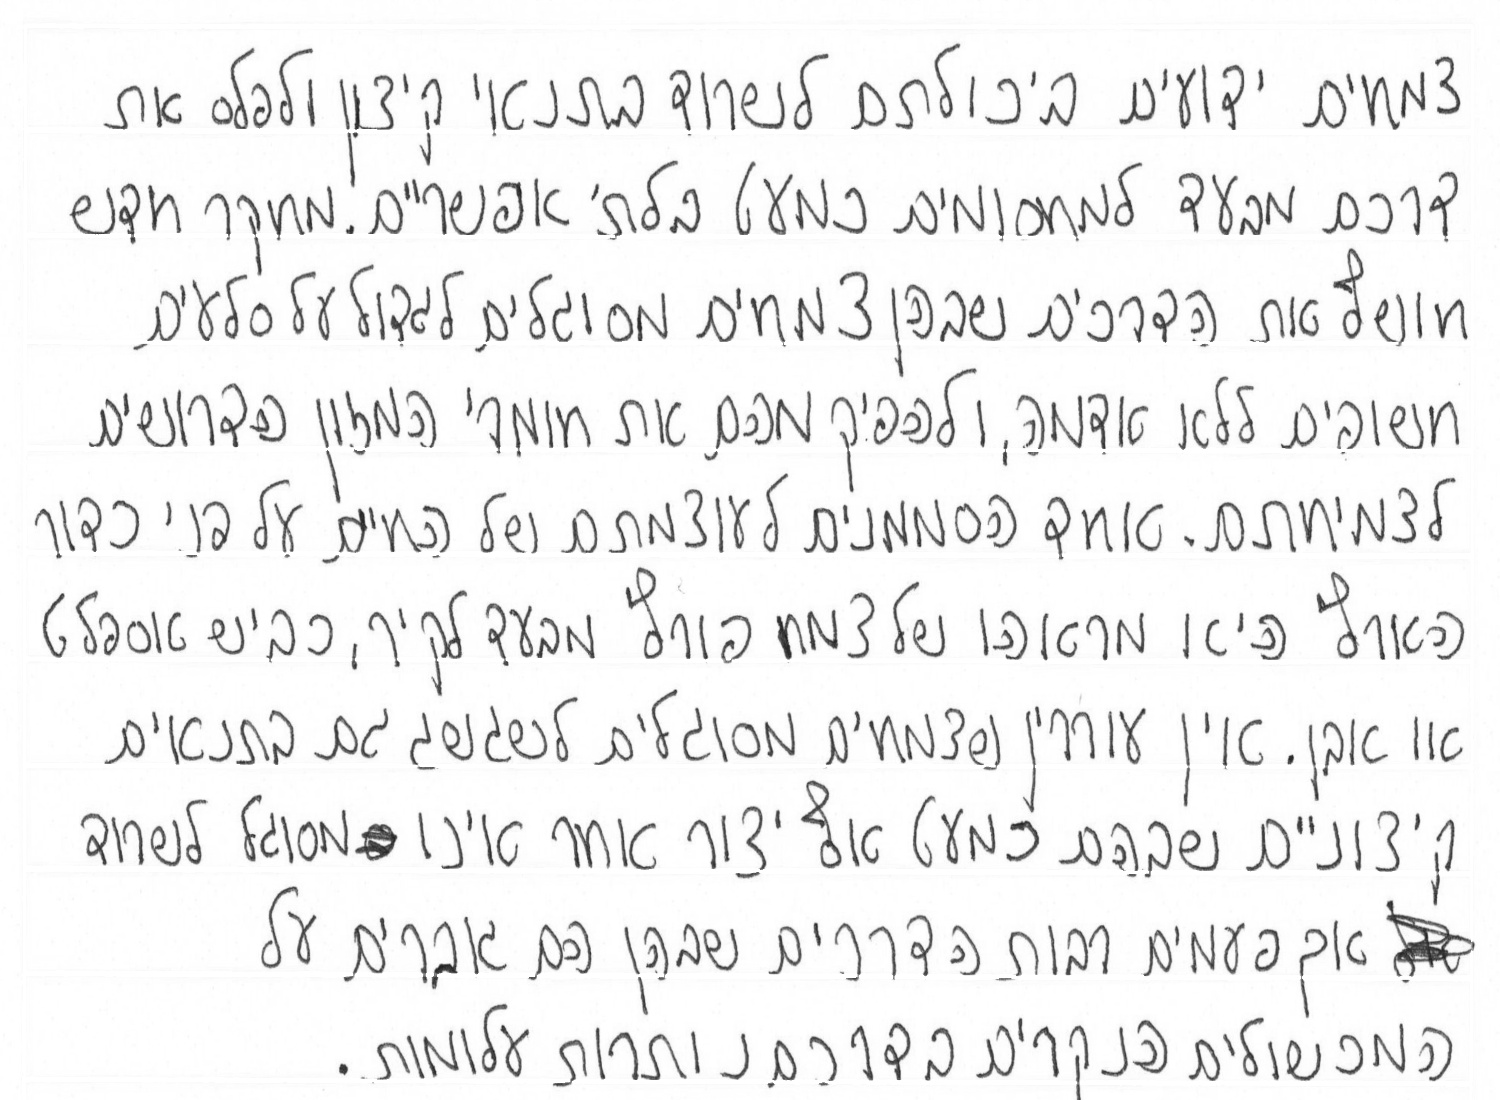 צמחים ידועים ביכולתם לשרוד בתנאי קיצון ולפלס את
דרכם מבעד למחסומים כמעט בלתי אפשריים. מחקר חדש
חושף את הדרכים שבהן צמחים מסוגלים לגדול על סלעים
חשופים ללא אדמה, ולהפיק מהם את חומרי המזון הדרושים
לצמיחתם. אחד הסממנים לעוצמתם של החיים על פני כדור
הארץ היא מראהו של צמח פורץ מבעד לקיר, כביש אספלט
או אבן. אין עוררין שצמחים מסוגלים לשגשג גם בתנאים
קיצוניים שבהם כמעט אף יצור אחר אינו מסוגל לשרוד
אך פעמים רבות הדרכים שבהן הם גוברים על
המכשולים הנקרים בדרכם נותרות עלומות.